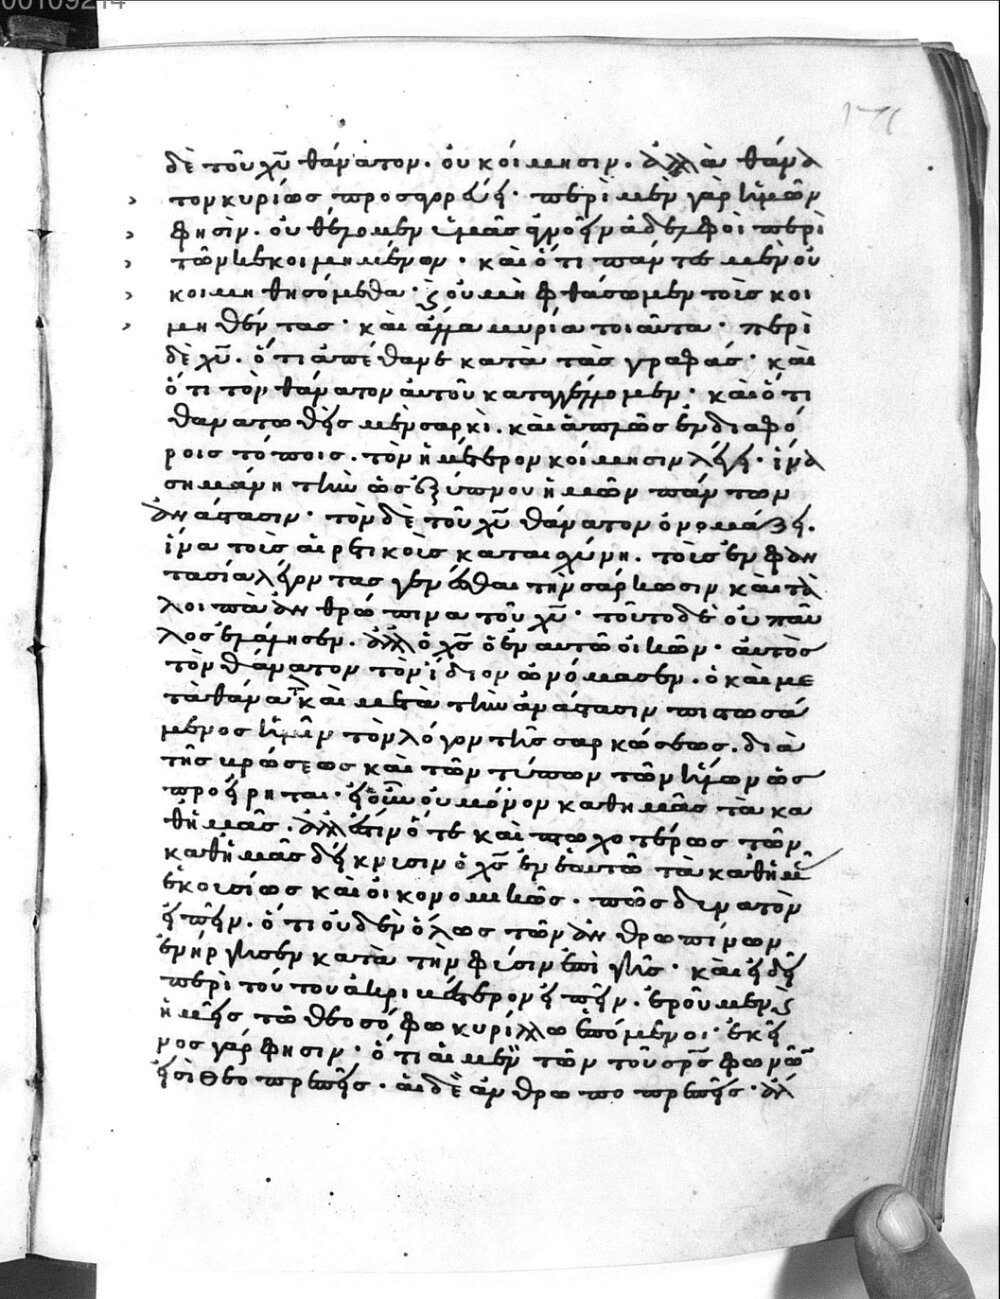 δὲ τοῦ χυ̅ θάνατον. οὐ κοίμησιν. ἀλλὰ θάνα
τον κυρίως προσαγορεύει· περὶ μὲν γὰρ ἡμῶν
φησὶν. οὐ θέλομεν ὑμᾶς ἀγνοεῖν ἀδελφοὶ περὶ
τῶν κεκοιμημένων· καὶ ὅτι πάντες μὲν οὐ
κοιμηθησόμεθα· καὶ οὐ μὴ φθάσωμεν τοὺς κοι
μηθέντας· καὶ ἄλλα μυρία τοιαῦτα· περὶ
δὲ χυ̅. ὅτι ἀπέθανε κατὰ τὰς γραφάς· καὶ
ὅτι τὸν θάνατον αὐτοῦ καταγγέλλομεν· καὶ ὅτι
θανατωθεὶς μὲν σαρκὶ. καὶ ἁπλῶς ἐν διαφό
ροις τόποις. τὸν ἡμέτερον κοίμησιν λέγει· ἵνα
σημάνη τὴν ὡς ἐξ ὕπνου ἡμῶν πάντων
ἀνάστασιν· τὸν δὲ τοῦ χυ̅ θάνατον ὀνομάζει.
ἵνα τοὺς αἱρετικοὺς καταισχύνη. τοὺς ἐν φαν
τασία λέγοντας γενέσθαι τὴν σάρκωσιν καὶ τὰ
λοιπὰ ἀνθρώπινα τοῦ χυ̅· τοῦτο δὲ οὐ παῦ
λος ἐλάλησεν. ἀλλ' ὁ χς̅ ὁ ἐν αὐτῶ οἰκῶν· αὐτὸς
τὸν θάνατον τὸν ἴδιον ὠνόμασεν. ὁ καὶ με
τὰ θάνατον καὶ μετὰ τὴν ἀνάστασιν πιστωσά
μενος ἡμῖν τὸν λόγον τῆς σαρκώσεως. διὰ
τῆς βρώσεως καὶ τῶν τύπων τῶν ἥλων ὡς
προείρηται· εἰ οὖν οὐ μόνον καθ ἡμᾶς τὰ κα
θ ἡμᾶς. ἀλλ' ἔστιν ὅτε καὶ πτωχοτέρως τῶν
καθ ἡμᾶς δείκνυσιν ὁ χς̅ ἐν ἑαυτῶ τὰ καθ ἡμᾶς
ἑκουσίως καὶ οἰκονομικῶς· πῶς δυνατὸν
εἰπεῖν. ὅτι οὐδὲν ὅλως τῶν ἀνθρωπίνων
ἐνήργησεν κατὰ τὴν φύσιν ἐπὶ γῆς· καὶ εἰ δεῖ
περὶ τούτου ἀκριβέστερον εἰπεῖν. ἐροῦμεν καὶ
ἡμεῖς τῶ θεοσόφω κυρίλλω ἑπόμενοι· ἐκεῖ
νος γάρ φησιν· ὅτι αἱ μὲν τῶν τοῦ σρ̅ς φωνῶν
εἰσὶ θεοπρεπεῖς· αἱ δὲ ἀνθρωποπρεπεῖς· αἱ